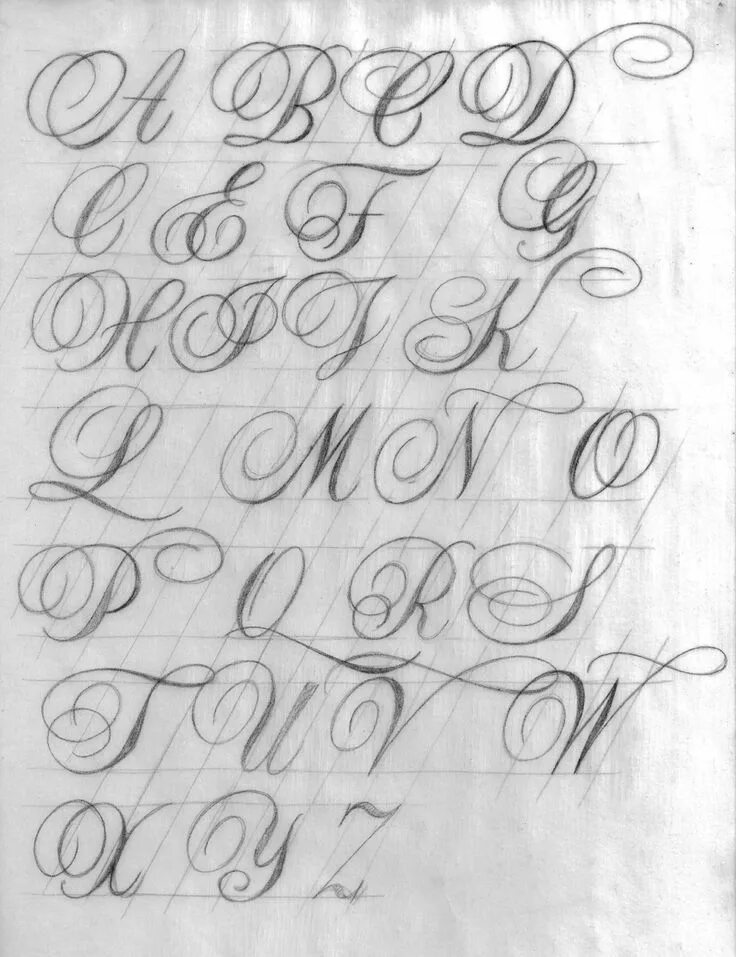 A B C D
C E F G
H I J K
L M N O
P Q R S
T U V W
X Y Z